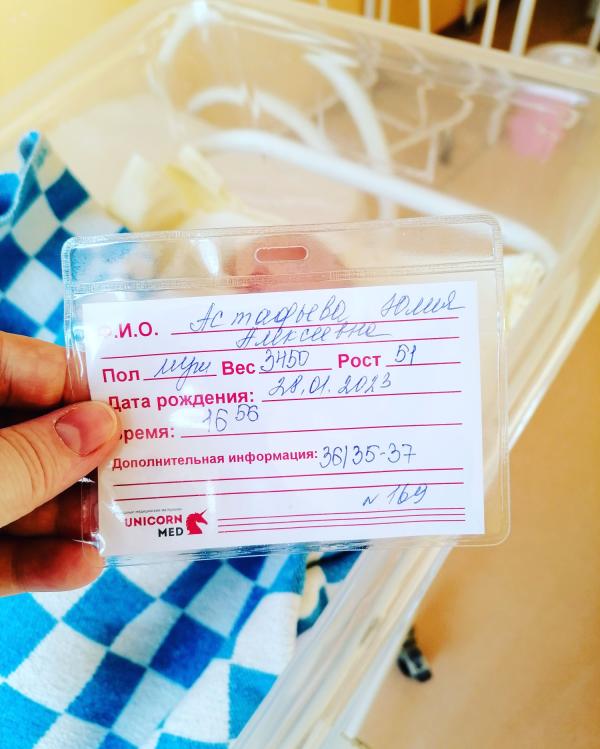 Ф.И.О. Астафьева Юлия
Алексеевна
Пол муж Вес 3450 Рост 51
Дата рождения: 28.01.2023
Время: 16 56
Дополнительная информация: 36/35-37
N 169
UNICORN
MED